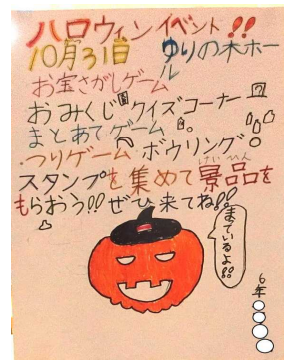 ハロウィンイベント!!
10月31日 ゆりの木ホール
お宝さがしゲーム
おみくじ クイズコーナー
まとあてゲーム
つりゲーム ボウリング
スタンプを集めて景品を
けいひん
もらおう!!ぜひ来てね!!
まっているよ!!
6年